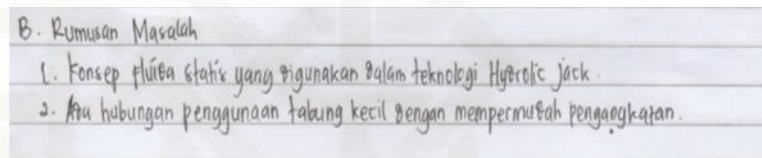 B. Rumusan Masalah
1. Konsep fluida statis yang digunakan dalam teknologi Hydrolic jack.
2. Apa hubungan penggunaan tabung kecil dengan mempermudah pengangkatan.